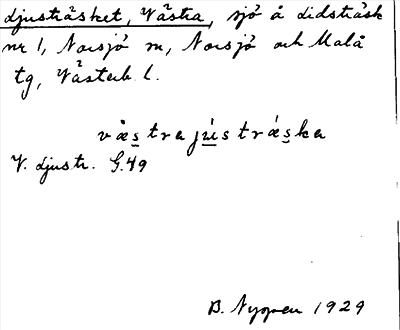 Ljusträsket, Västra, sjö å Lidsträsk
nr 1, Norsjö sn, Norsjö och Malå
tg, Västerb. l.
västrajústrǽska
V. Ljustr. G.49
B. Nygren 1929